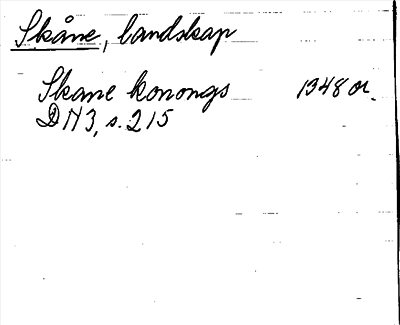 Skåne, landskap
Skane konongs 1348 or.
DN 3, s. 215